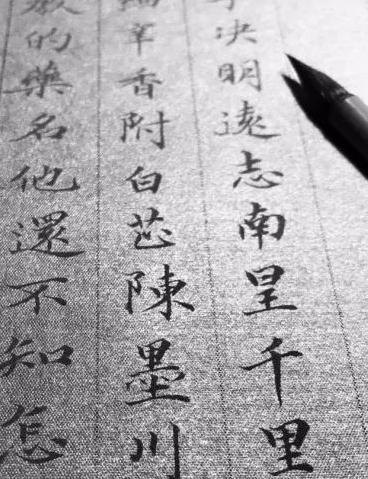 决明遠志南星千里
辛香附白芷陳墨川
教的藥名他還不知怎